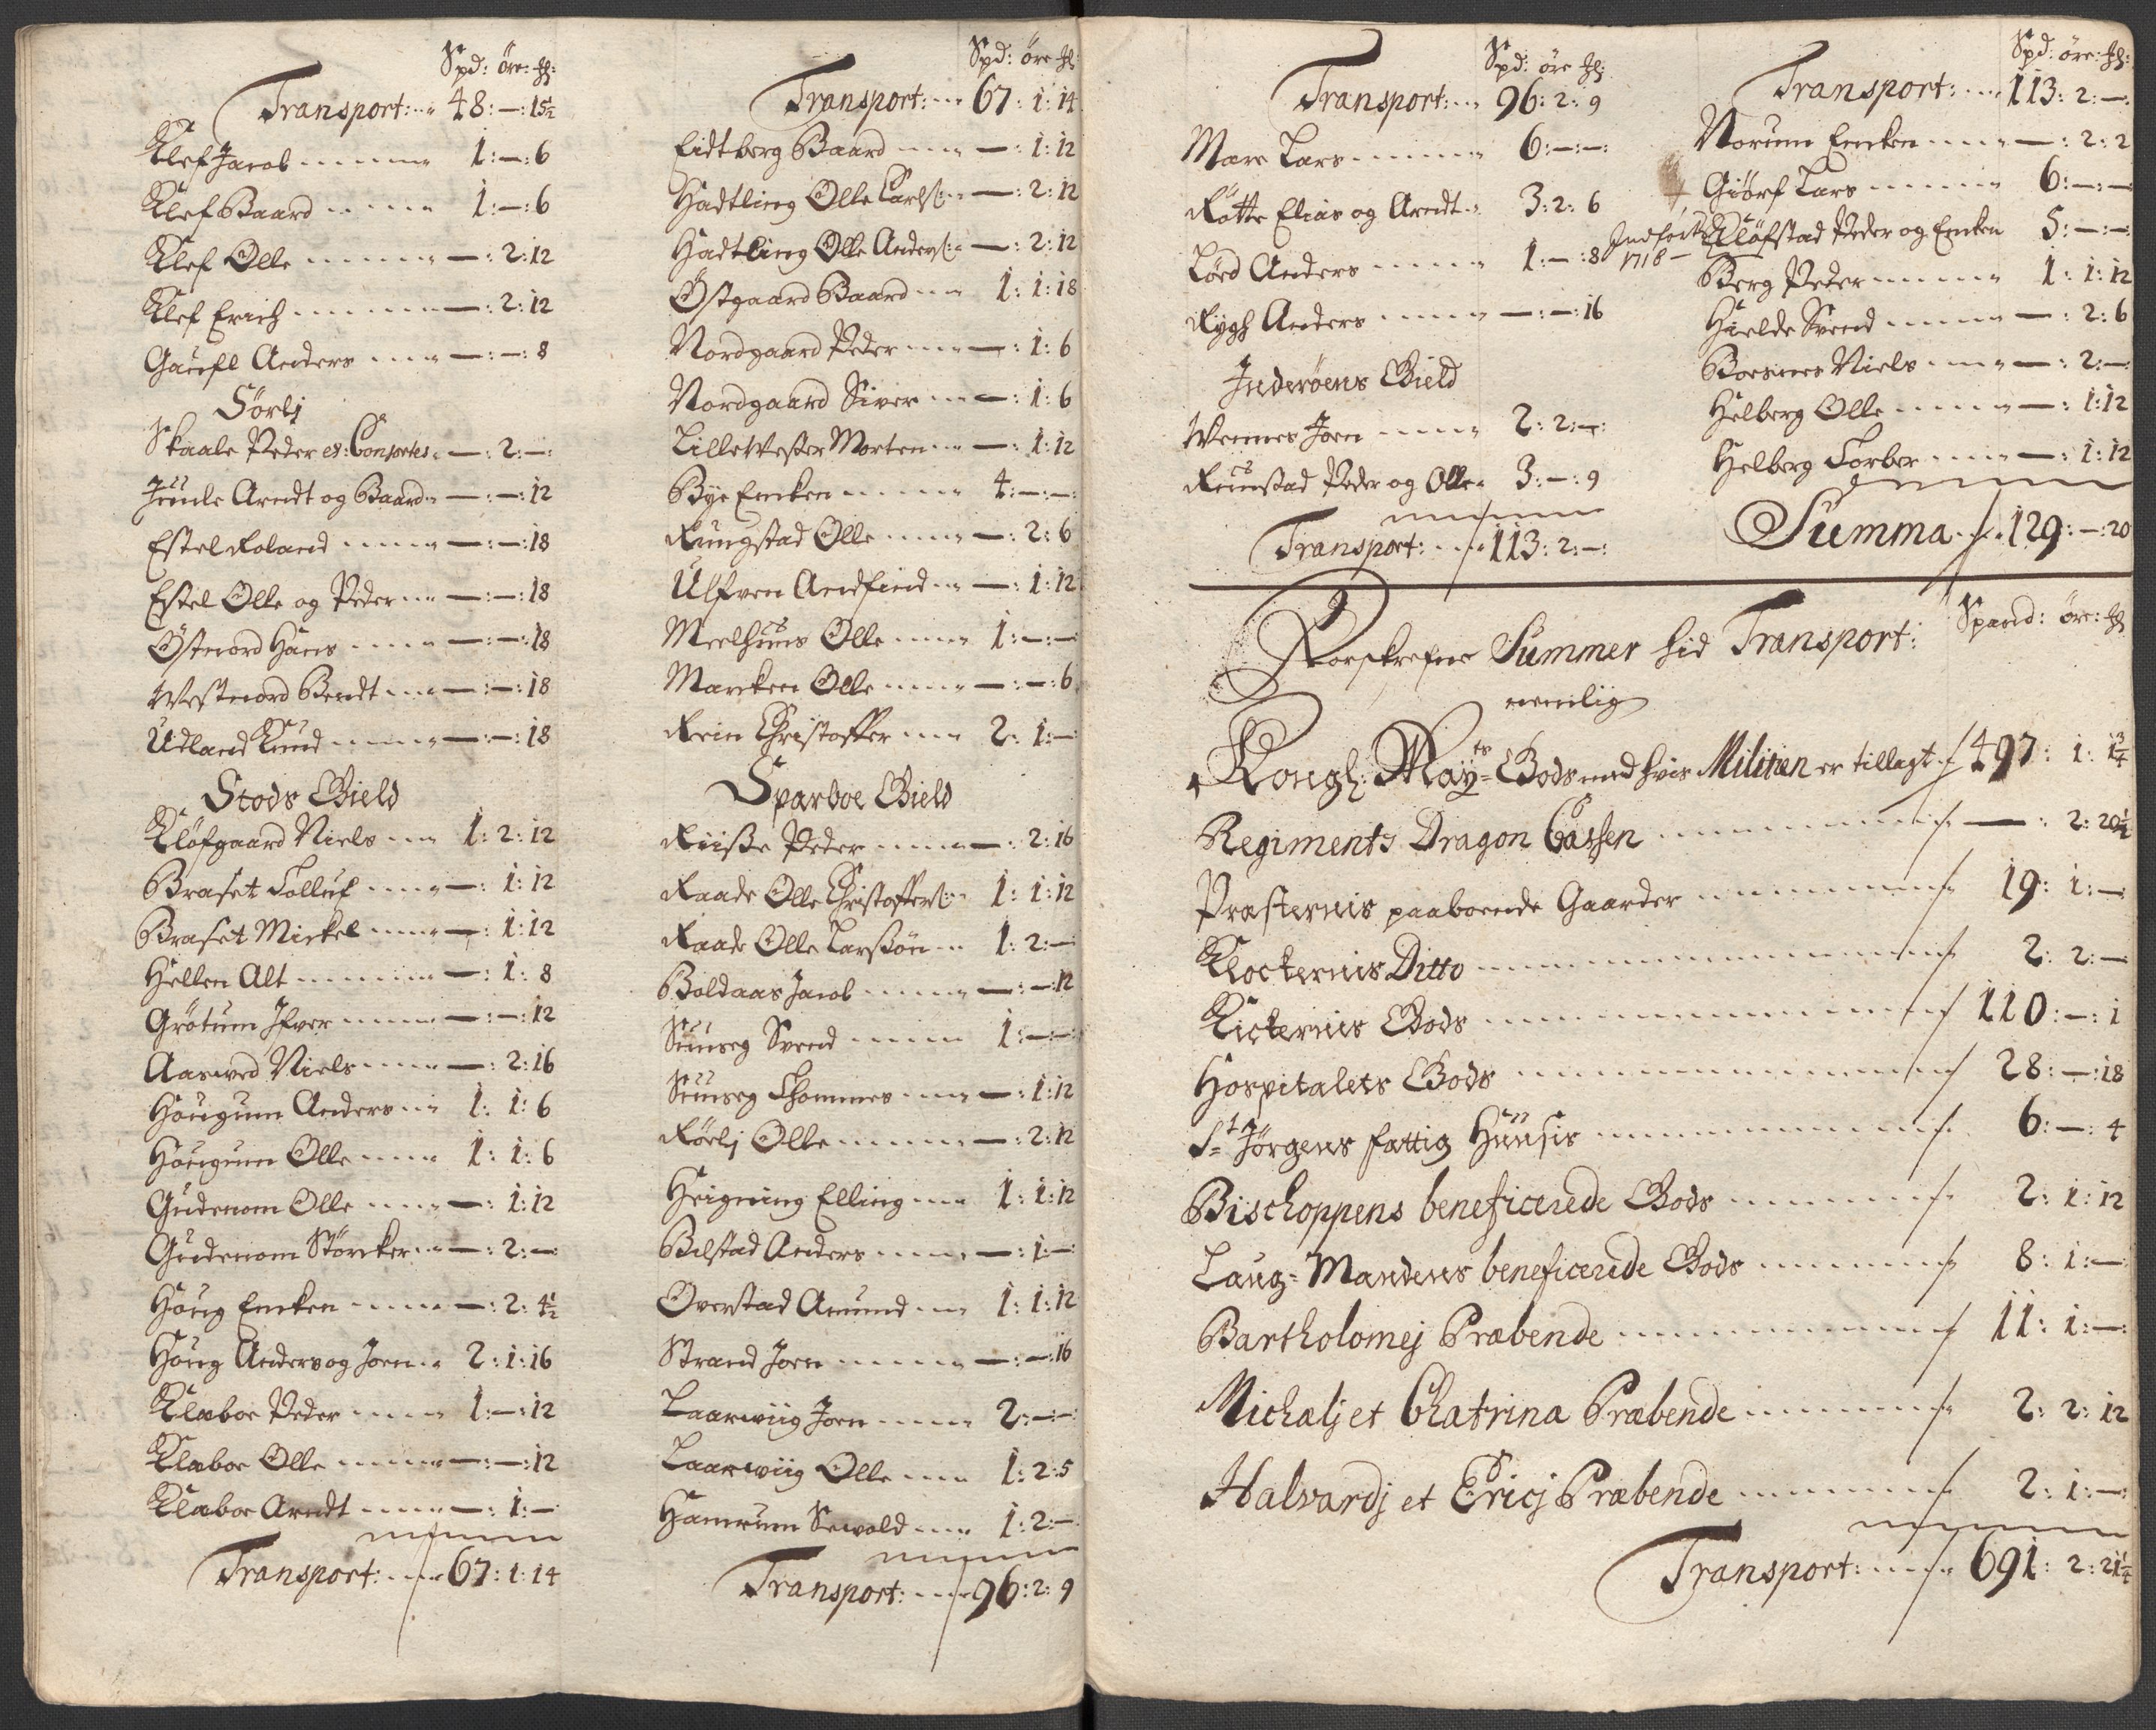 Spd: öre: Ꝟ:
Transport: 48:—:15½
Klef Jacob 1:—:6
Klef Baard 1:—:6
Klef Olle —:2:12
Klef Erich —:2:12
Gaufl Anders —:—:8
Sörlj
Skaale Peder et: Consortes —:2:—:
Juule Arndt og Baard —:—:12
Estel Roland —:—:18
Estel Olle og Peder —:—:18
Östnord Hans —:—:18
Westnord Bendt —:—:18
Udland Knud —:—:18
Stods Gield
Klöfgaard Niels 1:2:12
Braset Tolluf —:1:12
Braset Mickel —:1:12
Hellen Alt —:1:8
Grötum Ifver —:—:12
Aasved Niels —:2:16
Hougum Anders 1:1:6
Hougum Olle 1:1:6
Gudenom Olle —:1:12
Gudenom Störcker —:2:—:
Houg Encken —:2:4½
Houg Anders og Joen 2:1:16
Klæboe Peder 1:—:12
Klæboe Olle —:—:12
Klæboe Arndt —:1:—
Transport: 67:1:14
Spd: öre Ꝟ:
Transport: 67:1:14
Eidtberg Baard —:1:12
Hadtling Olle Carls: —:2:12
Hadtling Olle Anders: —:2:12
Östgaard Baard 1:1:18
Nordgaard Peder —:1:6
Nordgaard Siver —:1:6
Lille Wester Morten —:1:12
Bye Encken 4:—:—:
Rungstad Olle —:2:6
Ulfven Andfind —:1:12
Meelhuus Olle 1:—:—
Marcken Olle —:—:6
Rein Christoffer 2:1:—
Sparboe Gield
Riisse Peder —:2:16
Raade Olle Christoffers: 1:1:12
Raade Olle Larssön 1:2:—:
Boldaas Jacob —:—:12
Suuseg Svend 1:—:—:
Suuseg Thommes —:1:12
Rörlj Olle —:2:12
Heigning Elling 1:1:12
Bilstad Anders —:1:—:
Overstad Amund 1:1:12
Strand Joen —:—:16
Laarwiig Joen 2:—:—:
Laarwiig Olle 1:2:5
Hamrum Sewald 1:2:—
Transport: 96:2:9
Spd: öre Ꝟ:
Transport: 96:2:9
Mære Lars 6:—:—:
Rötte Elias og Arndt 3:2:6
Löed Anders 1:—:8
Rygh Anders —:—:16
Inderöens Gield
Wennes Joen 2:2:—:
Ruustad Peder og Olle 3:—:9
Transport: 113:2:—:
Spd: öre: Ꝟ:
Transport: 113:2:—:
Norum Encken —:2:2
Giörf Lars 6:—:—
Klöfstad Peder og Encken 5:—:—:
1718
Berg Peder 1:1:12
Hielde Svend —:2:6
Boesnes Niels —:2:—:
Helberg Olle —:1:12
Helberg Torber —:1:12
Summa 129:—:20
Spand: öre: Ꝟ
Forskrefne Summer hid Transport:
nemlig
Kongl: May:ts Gods med hvis Militien er tillagt 497:1:1¾
Regiments Dragon Cassen —:2:20½
Præsternis paaboende Gaarder 19:1:—
Klockernis Ditto 2:2:—
Kickernis Gods 110:—:1
Hospitalets Gods 28:—:18
St Jörgens fattig Huusis 6:—:4
Bischoppens beneficerede Gods 2:1:12
Laug=Mandens beneficerede Gods 8:1:—:
Bartholomej Præbende 11:1:—:
Michælj et Chatrina Præbende 2:2:12
Halvardj et Ericj Præbende 2:1:—:
Transport: 691:2:21¼